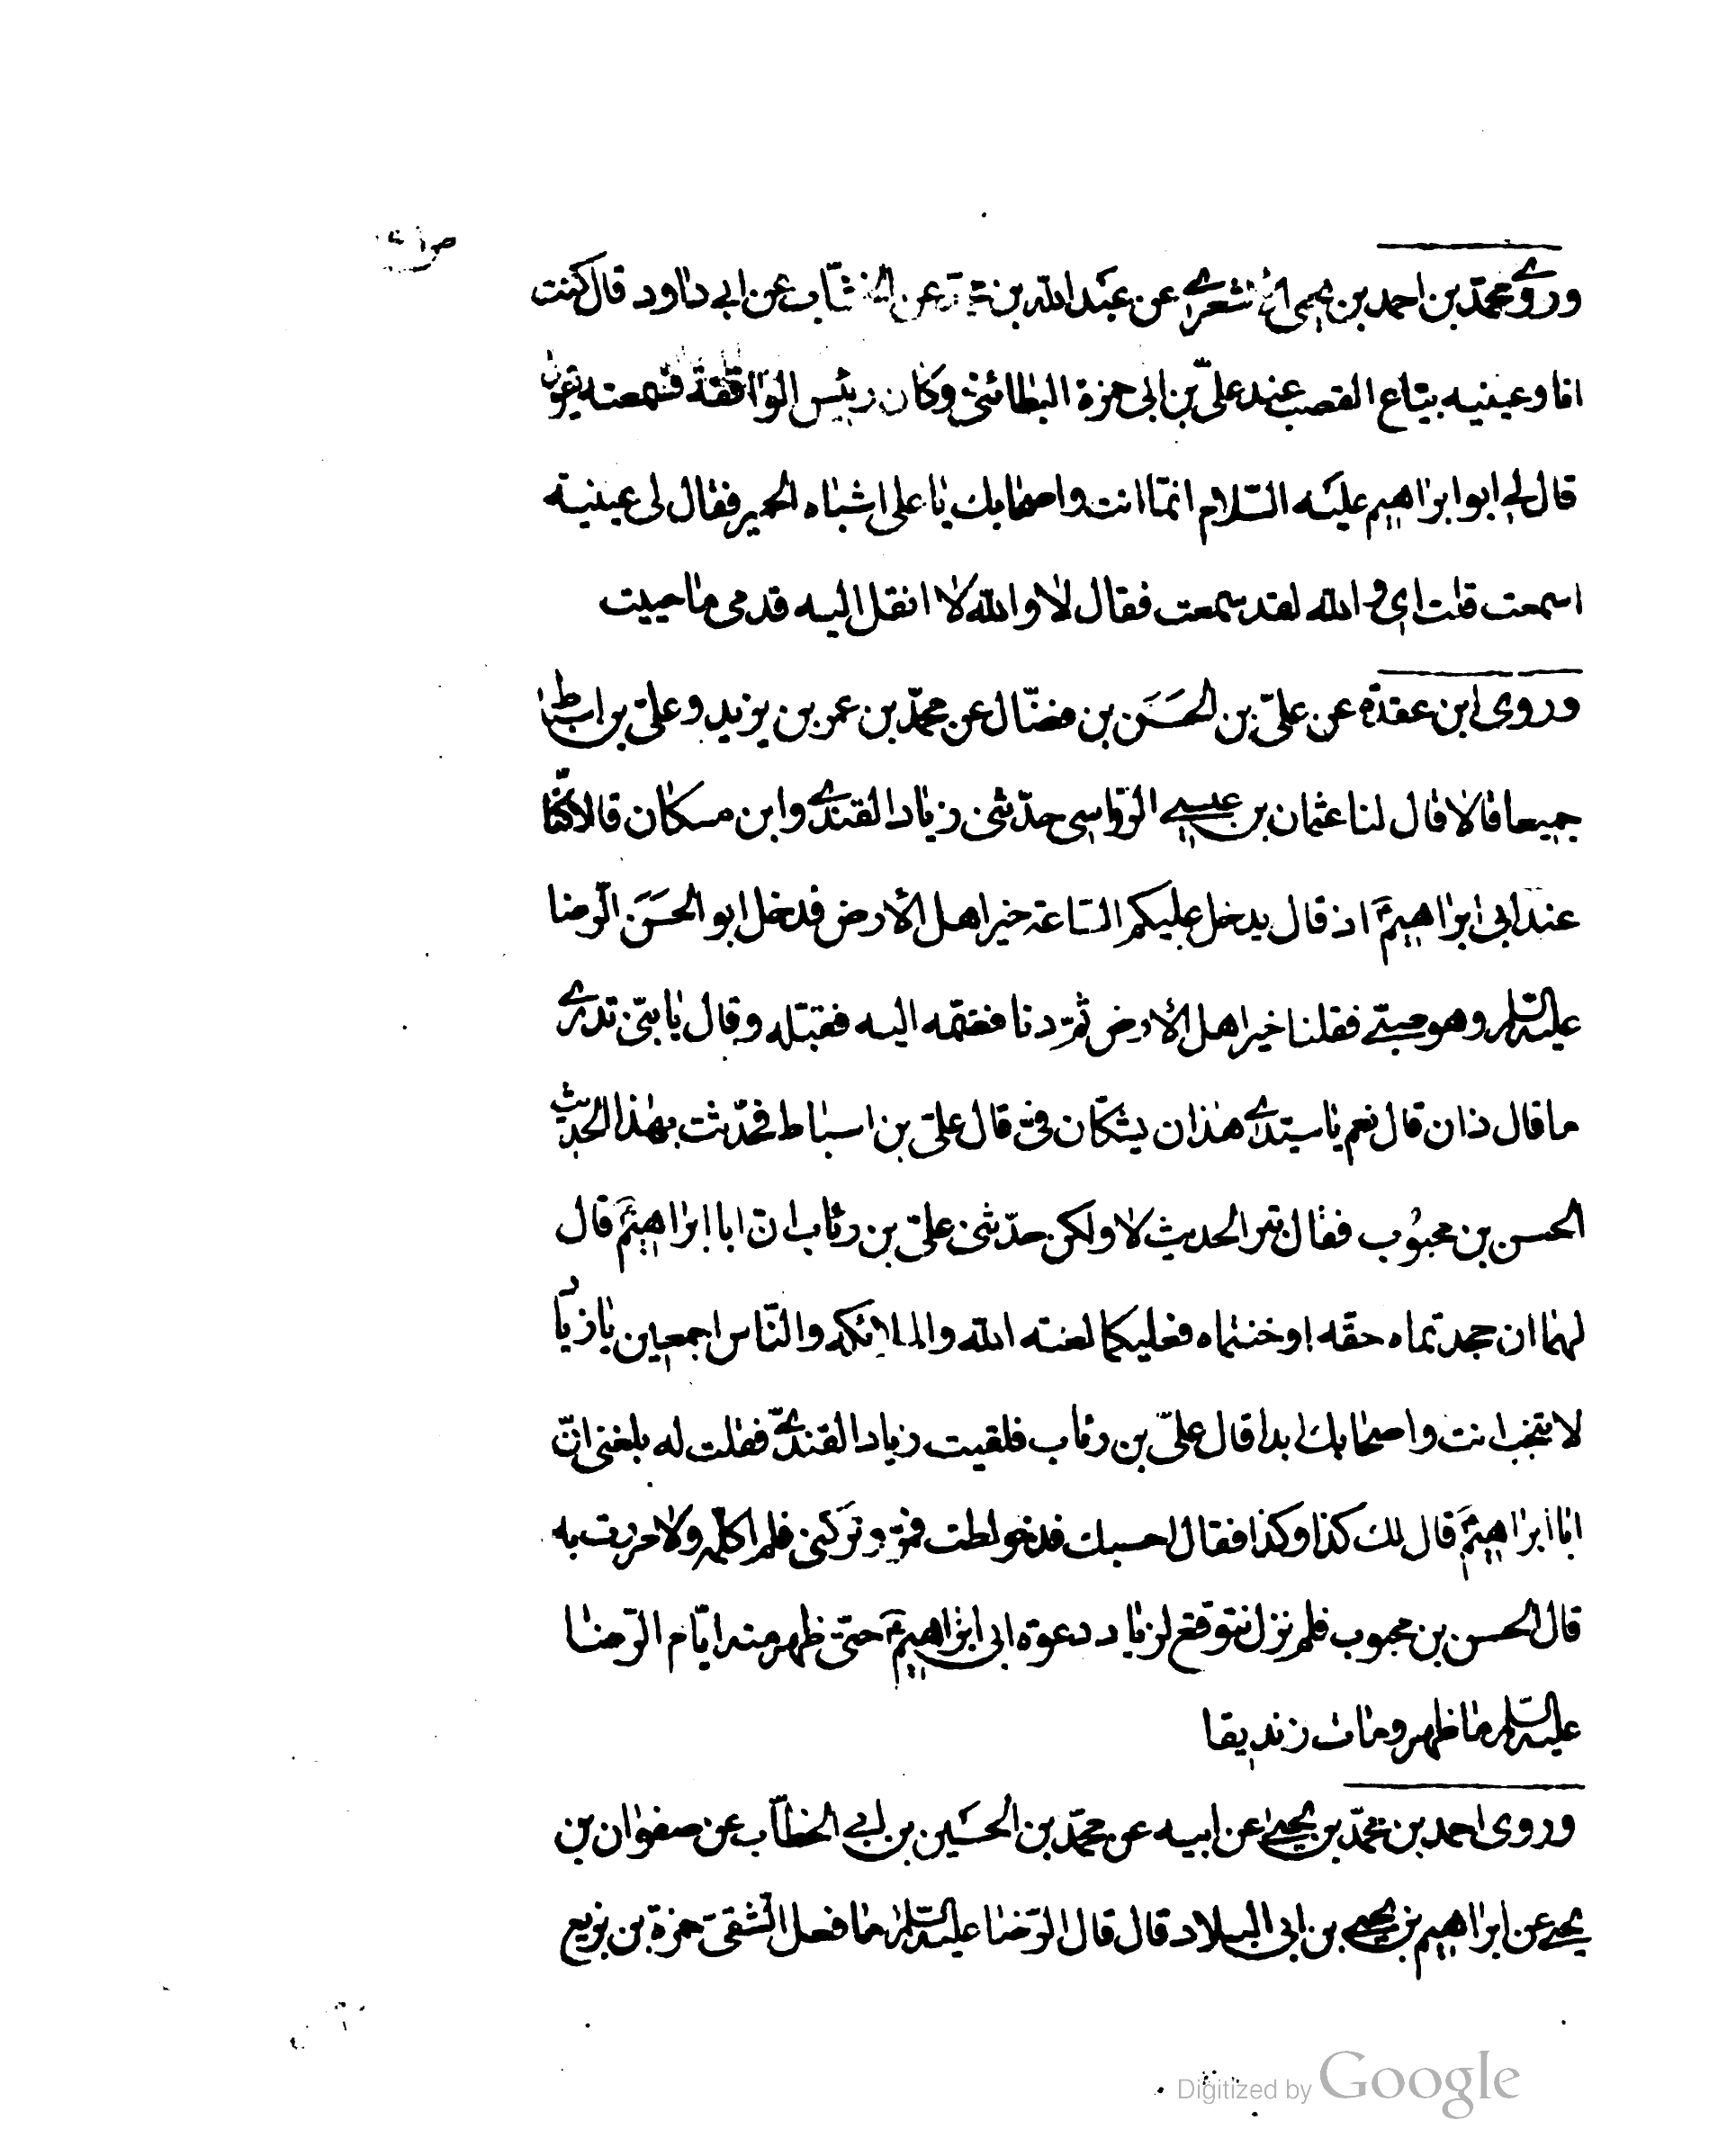 وروى محمد بن احمد بن يحيى الأشعري عن عبد الله بن عن الخشاب عن ابي داود قال كنت
انا وعيينه بيّاع القصب عند علىّ بن ابى حمزة البطائنى وكان رئيس الواقفة فسمعته يقول
قال لي ابو ابراهيم عليه السّلام انمّا انت واصحابك يا على اشباه الحمير فقال لى عيينة
اسمعت قلت اي والله لقد سمعت فقال لا والله لا انقل اليه قدمى ما حييت
وروى ابن عقدة عن علىّ بن الحَسَن بن فضّال عن محمّد بن عمر بن يزيد وعلىّ بن اسباط
جميعا قالا قال لنا عثمان بن عيسى الرّواسى حدّثنى زياد القندي وابن مسكان قالا كنّا
عند ابى ابراهيمَ اذ قال يدخل عليكم السّاعة خير اهل الأرض فدخل ابو الحَسَن الرّضا
عليه السّلم وهو صبيّ فقلنا خير اهل الأرض ثمّ دنا فضمّه اليه فقبّله وقال يا بنىّ تدري
ما قال ذان قال نعم يا سيّدي هذان يشكّان فىّ قال علىّ بن اسباط فحدّثت بهذا الحديث
الحسن بن محبُوب فقال بتر الحديث لا ولكن حدّثنى علىّ بن رئاب انّ ابا ابراهيمَ قال
لهما ان جحدتماه حقّه او خنتماه فعليكما لعنة الله والملائكة والنّاس اجمعين يا زياد
لا تنجب انت واصحابك ابدا قال علىّ بن رئاب فلقيت زياد القنديّ فقلت له بلغنى انّ
ابا ابراهيمَ قال لك كذا وكذا فقال احسبك قد خولطت فمرّ وتركنى فلم اكلّمه ولا مررت به
قال الحسن بن محبوب فلم نزل نتوقع لزياد دعوة ابى ابراهيمَ حتّى ظهر منه ايّام الرّضا
عليه السّلم ما ظهر ومات زنديقا
وروى احمد بن محمّد بن يحيى عن ابيه عن محمّد بن الحسَين بن ابي الخطّاب عن صفوان بن
يحيى عن ابراهيم بن يحيى بن ابى البلاد قال قال الرّضا عليه السّلم ما فعل الشّقىّ حمزة بن بزيع
Digitized by Google